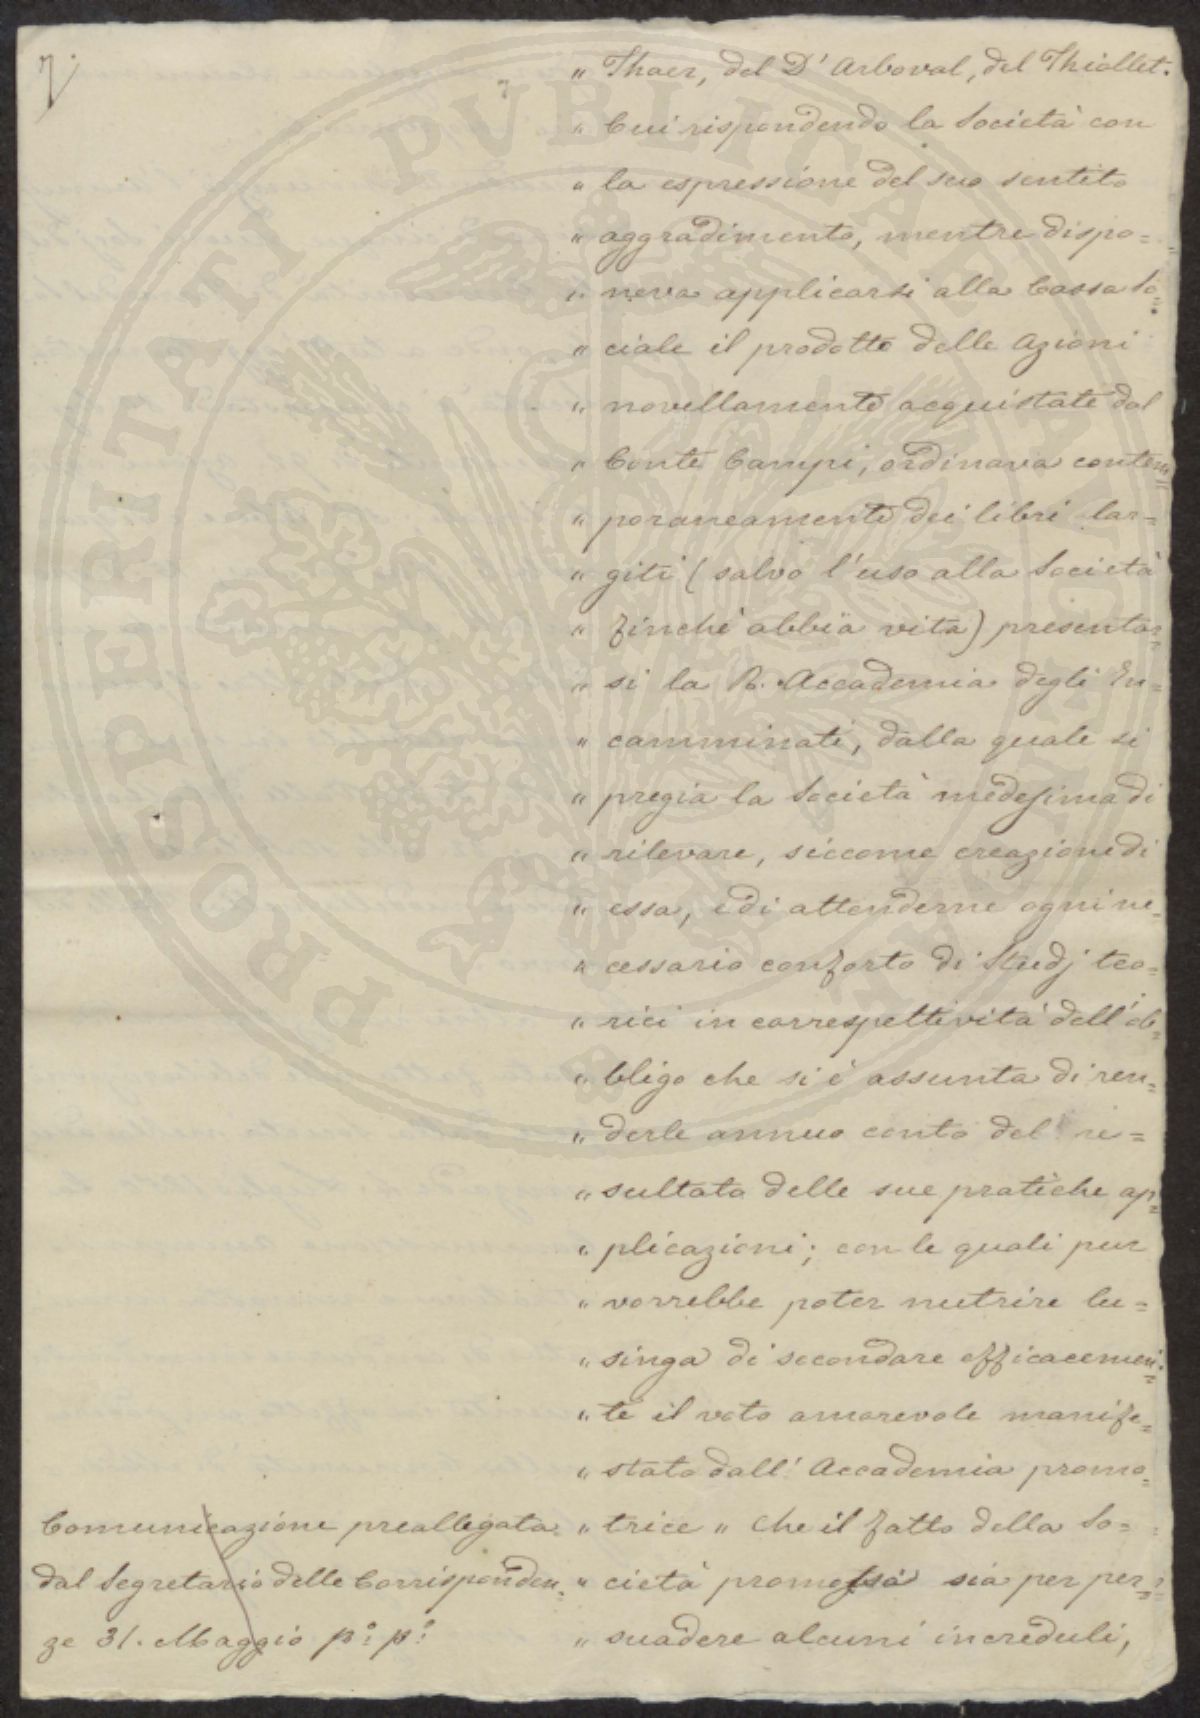 7.
7
„ Thaer, del D'Arboval, del Thiollet.
„ Cui rispondendo la Società con
„ la espressione del suo sentito
„ aggradimento, mentre dispo=
„ neva applicarsi alla Cassa So=
„ ciale il prodotto delle Azioni
„ novellamente acquistate dal
„ Conte Campi, ordinava contem=
„ poraneamente dei libri lar=
„ giti (salvo l'uso alla Società
„ finchè abbia vita) presentar=
„ si la R. Accademia degli In=
„ camminati, dalla quale si
„ pregia la Società medesima di
„ rilevare, siccome creazione di
„ essa, e di attenderne ogni ne=
„ cessario conforto di Studj teo=
„ rici in correspettività dell'ob=
„ bligo che si è assunta di ren=
„ derle annuo conto del ri=
„ sultato delle sue pratiche ap=
„ plicazioni; con le quali pur
„ vorrebbe poter nutrire lu=
„ singa di secondare efficacemen=
„ te il voto amorevole manife=
„ stato dall'Accademia promo=
„ trice „ che il fatto della So=
„ cietà promossa sia per per=
„ suadere alcuni increduli,
Comunicazione preallegata
dal Segretario delle Corrisponden=
ze 31. Maggio p.º p.º
PROSPERITATI PUBLICAE AUGENDAE